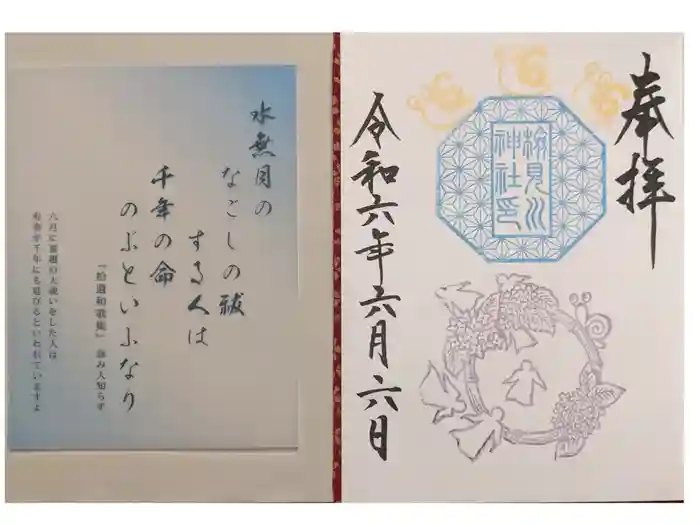 奉拝
検見川
神社印
令和六年六月六日
水無月の
なごしの祓
する人は
千年の命
のぶといふなり
『拾遺和歌集』読み人知らず
六月に夏越の大祓いをした人は
寿命が千年にも延びるといわれていますよ